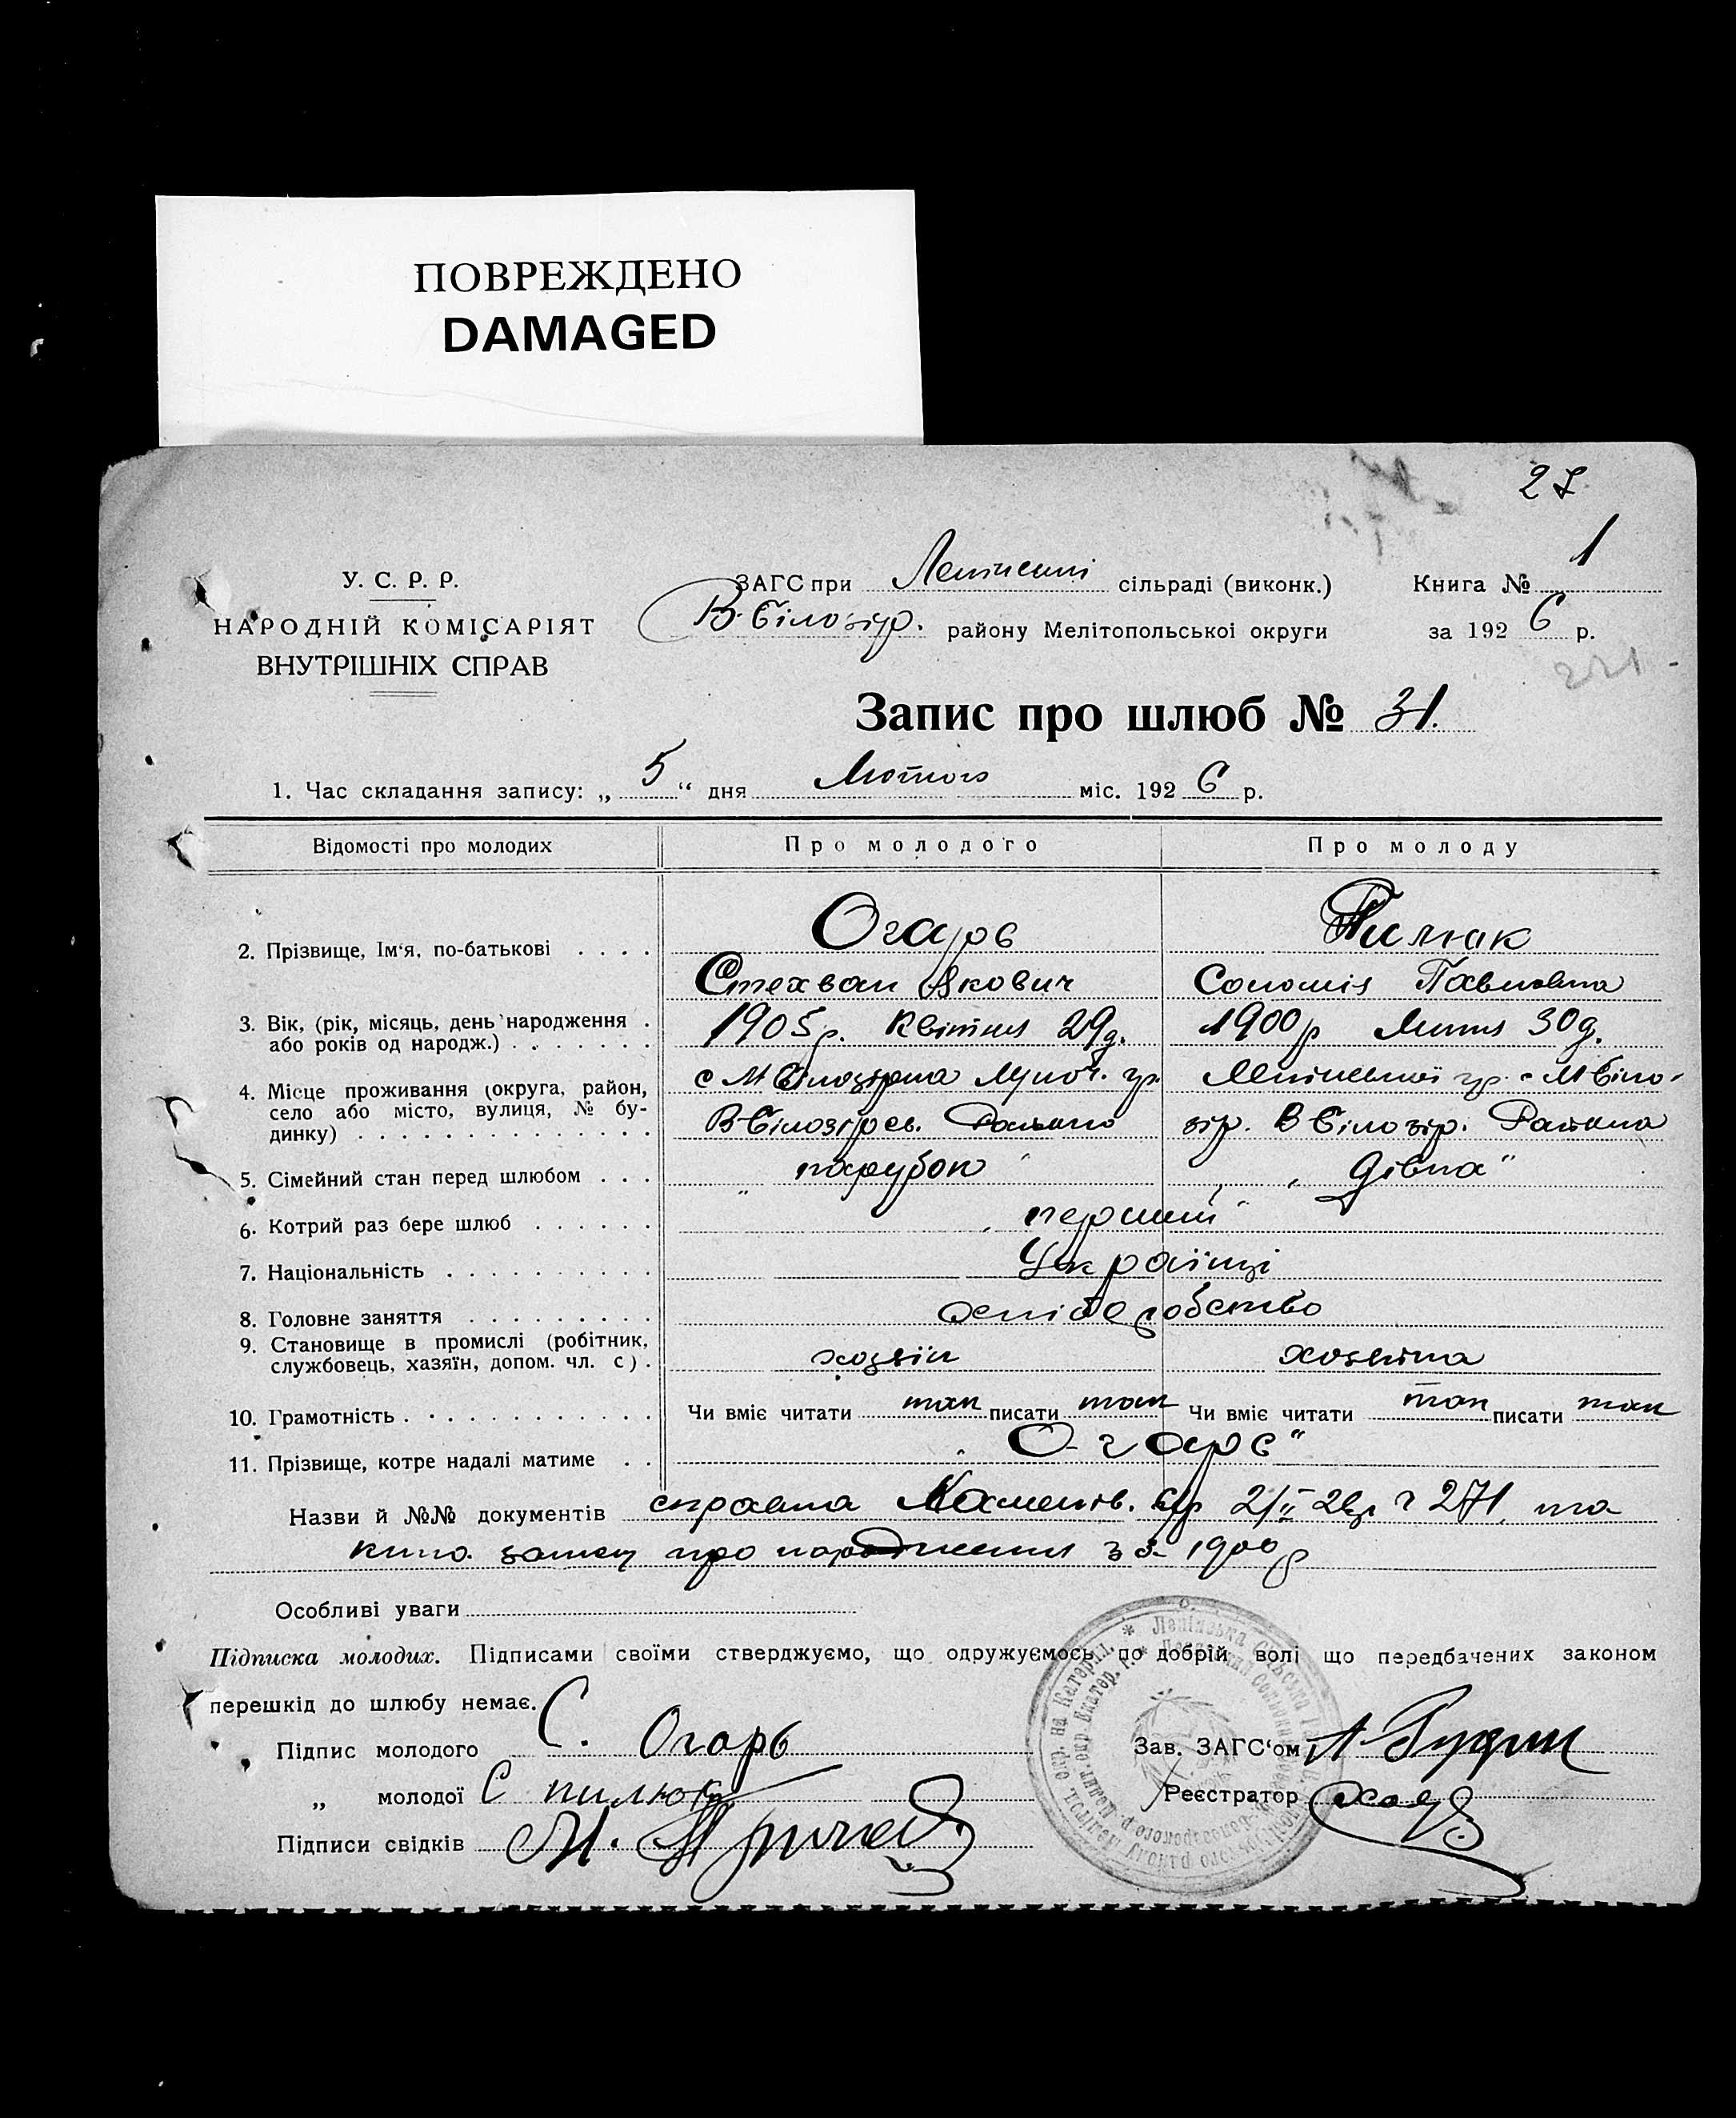 ПОВРЕЖДЕНО
DAMAGED
27
У. С. Р. Р.
НАРОДНІЙ КОМІСАРІЯТ
ВНУТРІШНІХ СПРАВ
ЗАГС при сільраді (виконк.)
В-Білозір. району Мелітопольської округи
Книга № 1
за 1926 р.
221 -
Запис про шлюб № 31.
1. Час складання запису: „ 5 “ дня Лютого міс. 1926 р.
Відомості про молодих Про молодого Про молоду
2. Прізвище, Ім‘я, по-батькові . . . . Огарь Пилюк
Стехван Якович Соломія Павловна
3. Вік, (рік, місяць, день народження . 1905р. Квітня 29д. 1900р Липня 30д.
або років од народж.) . . . . . . .
4. Місце проживання (округа, район, с М Білозірка
село або місто, вулиця, № бу- В-Білозірсь. Району зір. В Білозір. Района
динку) . . . . . . . . . . . . . .
5. Сімейний стан перед шлюбом . . . „ парубок “ „ дівка “
6. Котрий раз бере шлюб . . . . . . „ перший “
7. Національність . . . . . . . . . . Українці
8. Головне заняття . . . . . . . . .
9. Становище в промислі (робітник,
службовець, хазяїн, допом. чл. с) . хозяїн хозяйка
10. Грамотність . . . . . . . . . . . . Чи вміє читати так писати так Чи вміє читати так писати так
11. Прізвище, котре надалі матиме . . „ Огарь “
Назви й №№ документів справка 271 та
запису про народження за 1900р
Особливі уваги
Підписка молодих. Підписами своїми стверджуємо, що одружуємось по добрій волі що передбачених законом
перешкід до шлюбу немає.
Підпис молодого С. Огарь
„ молодої С пилюк
Підписи свідків
Зав. ЗАГС‘ом
Реєстратор